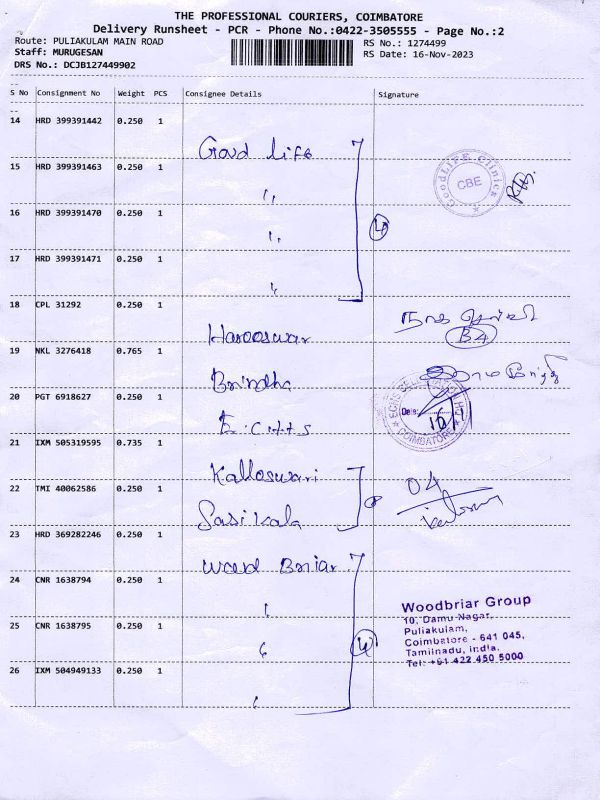 THE PROFESSIONAL COURIERS, COIMBATORE
Delivery Runsheet - PCR - Phone No.:0422-3505555 - Page No.:2
Route: PULIAKULAM MAIN ROAD
RS No.: 1274499
Staff: MURUGESAN
RS Date: 16-Nov-2023
DRS No.: DCJB127449902
S No Consignment No Weight PCS Consignee Details Signature
14 HRD 399391442 0.250 1
Good life
15 HRD 399391463 0.250 1
GOODLIFE Clinics
CBE
16 HRD 399391470 0.250 1
4
17 HRD 399391471 0.250 1
18 CPL 31292 0.250 1
B4
19 NKL 3276418 0.765 1
Brindha
20 PGT 6918627 0.250 1
COIMBATORE
E.C.H.S
21 IXM 505319595 0.735 1
22 TMI 40062586 0.250 1
04
Sasikala
23 HRD 369282246 0.250 1
Wood Briar
24 CNR 1638794 0.250 1
25 CNR 1638795 0.250 1
4
26 IXM 504949133 0.250 1
Woodbriar Group
10, Damu Nagar,
Puliakulam,
Coimbatore - 641 045,
Tamilnadu, India.
Tel: +91 422 450 5000